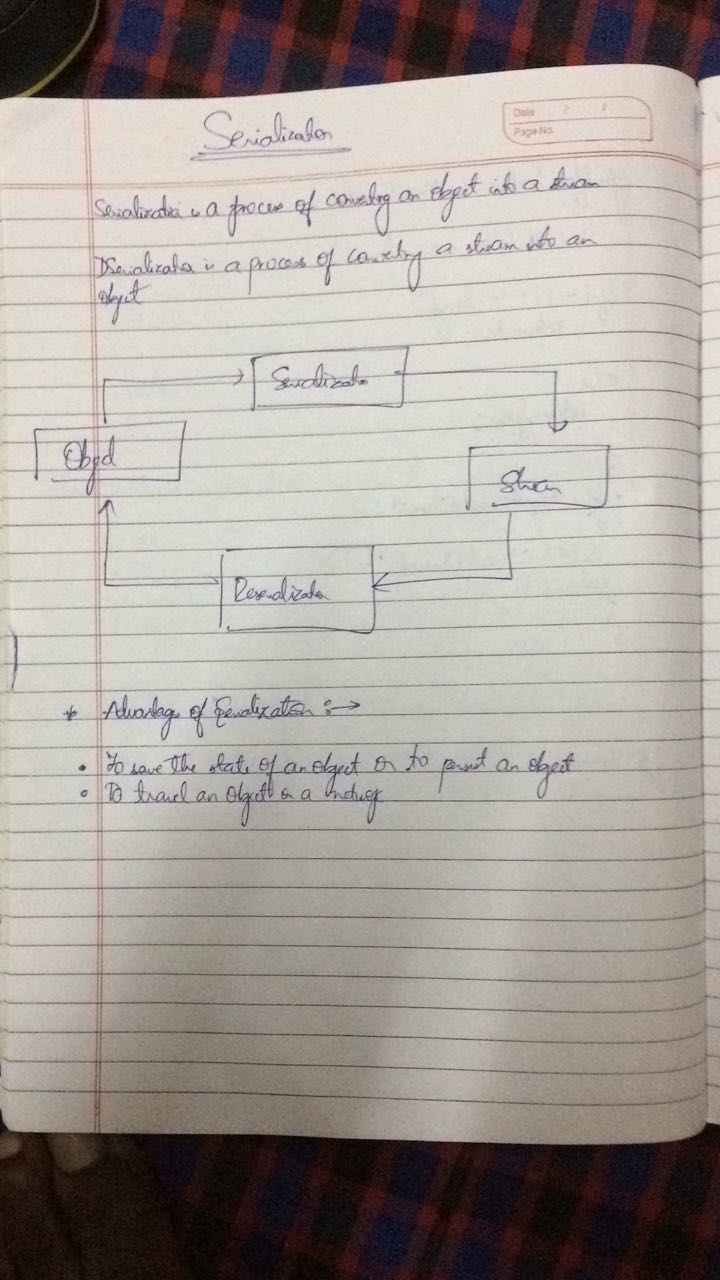 Serialization
Date / /
Page No.
Serialization is a process of converting an object into a stream
DSerialization is a process of converting a stream into an
object
Serialization
Object
Stream
Deserialization
* Advantage of Serialization :→
• To save the state of an object or to persist an object
• To travel an object on a